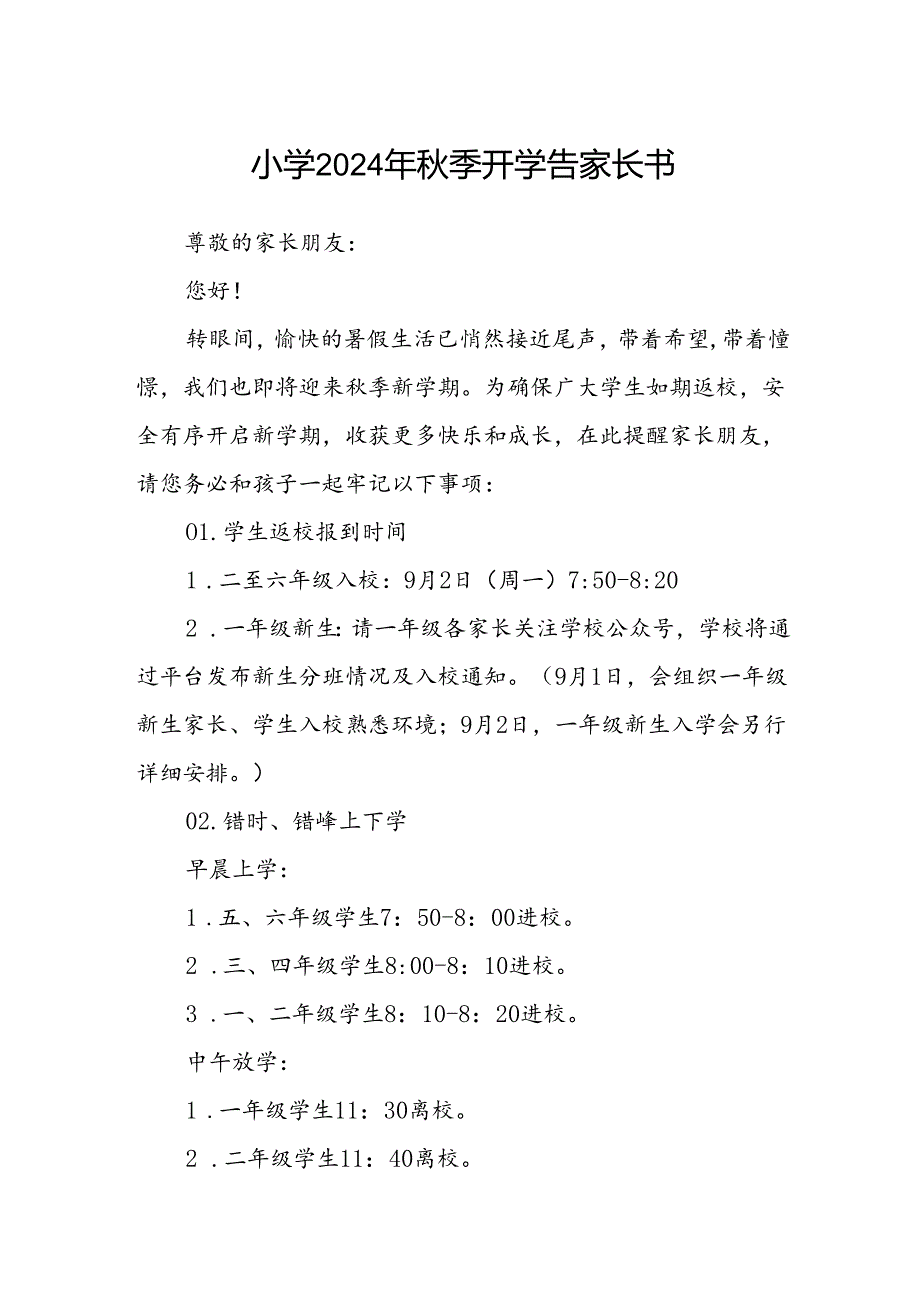 小学2024年秋季开学告家长书
尊敬的家长朋友：
您好！
转眼间，愉快的暑假生活已悄然接近尾声，带着希望，带着憧
憬，我们也即将迎来秋季新学期。为确保广大学生如期返校，安
全有序开启新学期，收获更多快乐和成长，在此提醒家长朋友，
请您务必和孩子一起牢记以下事项：
01.学生返校报到时间
1 .二至六年级入校：9月2日（周一）7:50-8:20
2 .一年级新生：请一年级各家长关注学校公众号，学校将通
过平台发布新生分班情况及入校通知。（9月1日，会组织一年级
新生家长、学生入校熟悉环境；9月2日，一年级新生入学会另行
详细安排。）
02.错时、错峰上下学
早晨上学：
1 .五、六年级学生7：50-8：00进校。
2 .三、四年级学生8:00-8：10进校。
3 .一、二年级学生8：10-8：20进校。
中午放学：
1 .一年级学生11：30离校。
2 .二年级学生11：40离校。